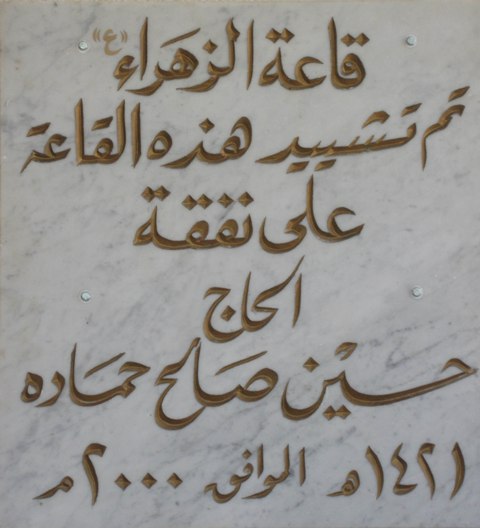 قاعة الزهراء «ع»
تم تشييد هذه القاعة
على نفقة
الحاج
حسين صالح حماده
١٤٢١هـ الموافق ٢٠٠٠م